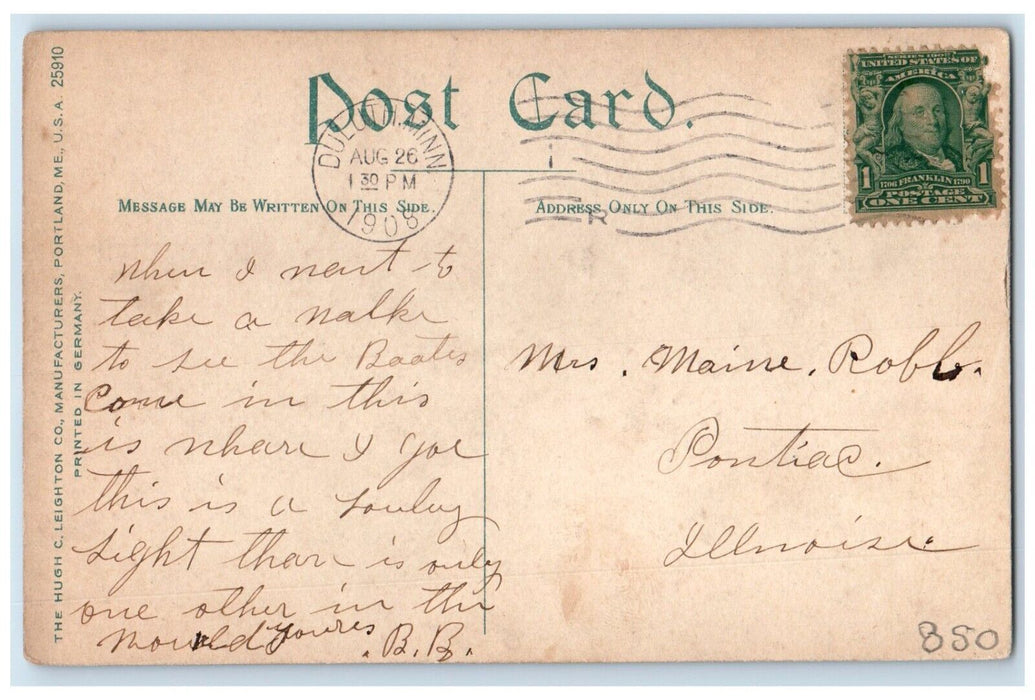 THE HUGH C. LEIGHTON CO., MANUFACTURERS, PORTLAND, ME., U.S.A. 25910
PRINTED IN GERMANY.
Post Card.
DULUTH, MINN.
AUG 26
1 30 PM
1908
SERIES 1902
UNITED STATES OF
AMERICA
1 1
1706 FRANKLIN 1790
POSTAGE
ONE CENT
MESSAGE MAY BE WRITTEN ON THIS SIDE.
ADDRESS ONLY ON THIS SIDE.
R
When I want to
take a walke
to see the Boates
Come in this
is where I goe
this is a louley
sight thar is only
one other in the
would youres
B.B.
Mrs. Maine. Robb.
Pontiac.
Illnoise
B50